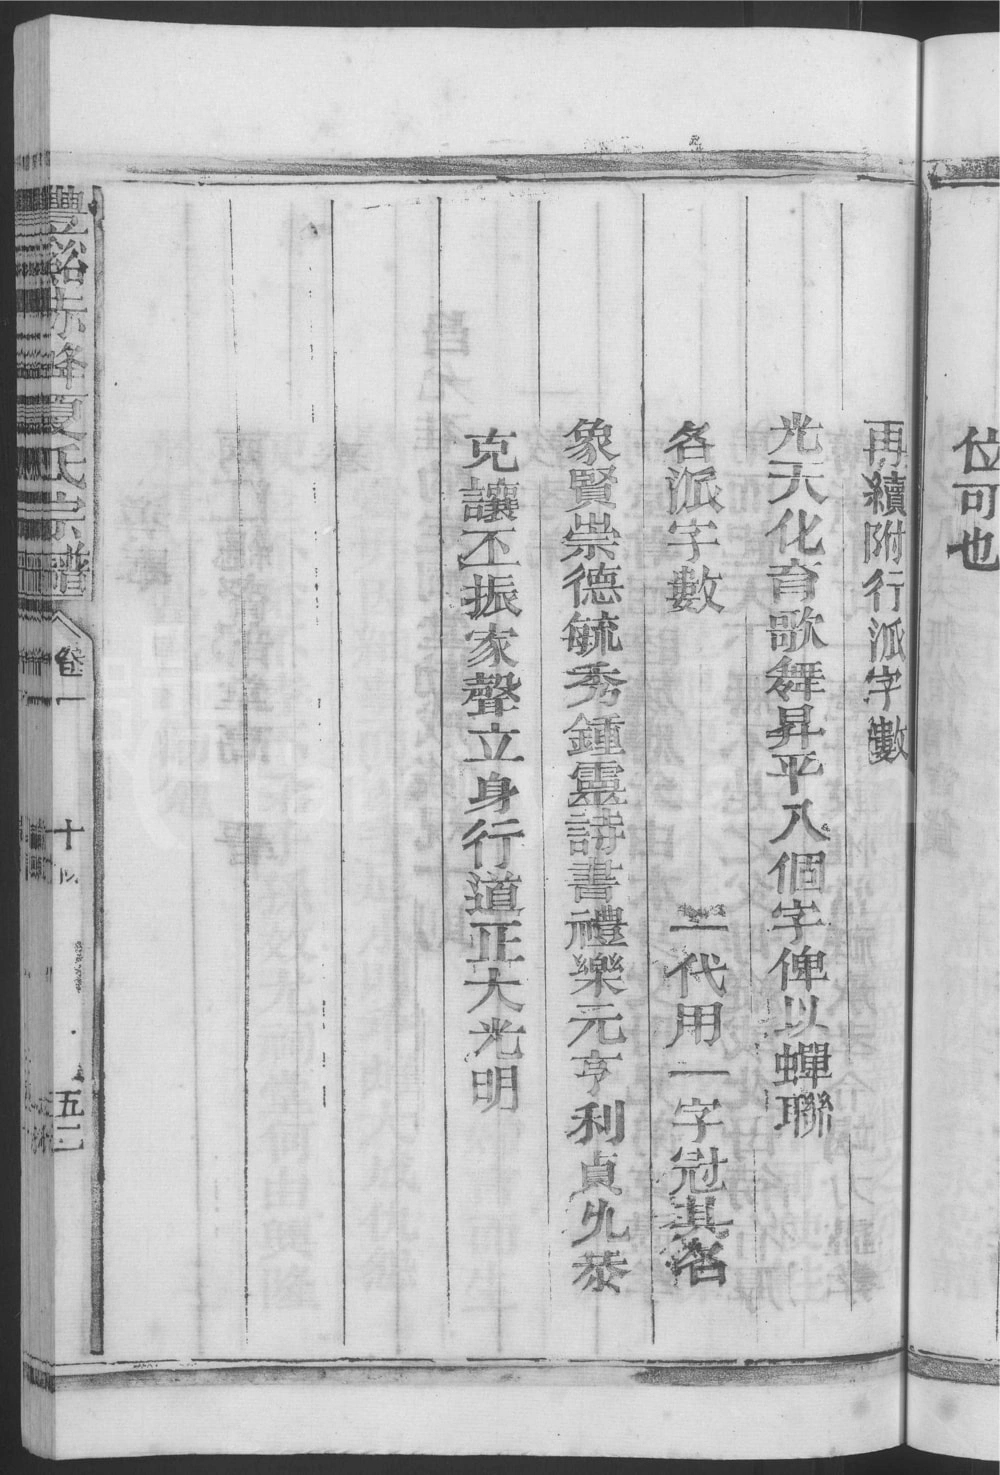 位可也
再續附行派字數
光天化育歌舞昇平八個字俾以蟬聯
各派字數 一代用一字冠其名
象賢崇德毓秀鍾靈詩書禮樂元亨利貞允恭
克讓丕振家聲立身行道正大光明
豐谿赤峰夏氏宗譜 卷一